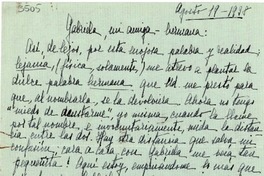 3505
Agosto 19 - 1938
Gabriela, mi amiga - hermana:
Así, de lejos, por esta mojosa palabra y realidad;
lejanía, física, solamente, me atrevo a plantar la
dulce palabra hermana que Ud. me presta para
que, al nombrarla, se la devolviera. Ahora no tengo
"miedo de
" yo misma, cuando la llame
por tal nombre, e involuntariamente mida la distan
cia entre las dos. Muy otra distancia que salva mi
confusión, cara a cara con Gabriela me vea tan
pequeñita! Aquí estoy, empinándome lo más que